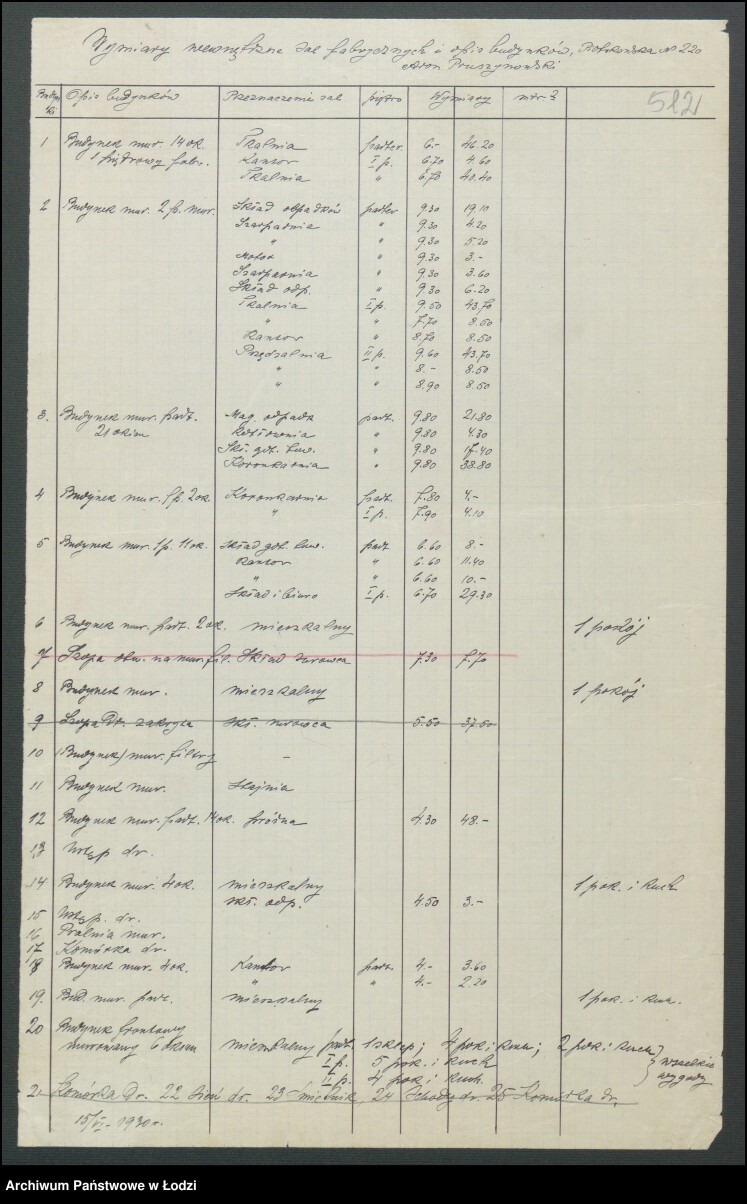 Wymiary wewnętrzne sal fabrycznych i opis budynków, Piotrkowska № 220
Aron Pruszynowski
Budyn. № Opis budynków Przeznaczenie sal piętro Wymiary mtr²
512
1 Budynek mur. 14 ok. Tkalnia parter. 6.- 46.20
1 piętrowy fabr. Kantor I p. 6.70 4.60
Tkalnia " 6.70 40.40
2 Budynek mur. 2 p. mur. Skład odpadków parter 9.30 19.10
Szarparnia " 9.30 4.20
" " 9.30 5.20
Motor " 9.30 3.-
Szarparnia " 9.30 3.60
Skład odp. " 9.30 6.20
Tkalnia I p. 9.50 43.70
" " 7.70 8.50
Kantor " 8.70 8.50
Przędzalnia II p. 9.60 43.70
" " 8.- 8.50
" " 8.90 8.50
3. Budynek mur. part. Mag. odpadk part. 9.80 21.80
21 okien Kotłownia " 9.80 4.30
Skł. got. tow. " 9.80 17.40
" 9.80 38.80
4 Budynek mur. 1 p. 2 ok part. 7.80 4.-
" I p. 7.90 4.10
5 Budynek mur. 1 p. 11 ok. Skład got. tow. part 6.60 8.-
Kantor " 6.60 11.40
" " 6.60 10.-
Skład i biuro I p. 6.70 29.30
6 Budynek mur. part. 2 ok. mieszkalny 1 pokój
7 Szopa otw. na mur. fil. Skład surowca 7.30 7.70
8 Budynek mur. mieszkalny 1 pokój
9 Szopa dr. zakryta skł. surowca 5.50 37.50
10 (Budynek) mur. filtry -
11 Budynek mur. Stajnia
12 Budynek mur. part. 14 ok. próżna 4.30 48.-
13 Ustęp dr.
14 Budynek mur. 4 ok. mieszkalny 1 pok. i kuch
skł. odp. 4.50 3.-
15 Ustęp. dr.
16 Pralnia mur.
17 Komórka dr.
18 Budynek mur. 4 ok. Kantor part. 4.- 3.60
" " 4.- 2.20
19. Bud. mur. part. mieszkalny 1 pok. i kuch.
20 Budynek frontowy
murowany 6 okien mieszkalny part. 1 sklep; 4 pok i kuch; 2 pok i kuch
I p. 5 pok. i kuch wszelkie
II p. 4 pok i kuch. wygody
21 Komórka dr. 22 Sień dr. 23 24 Schody dr. 25 Komórka dr.
15/VI - 1930 r.
Archiwum Państwowe w Łodzi